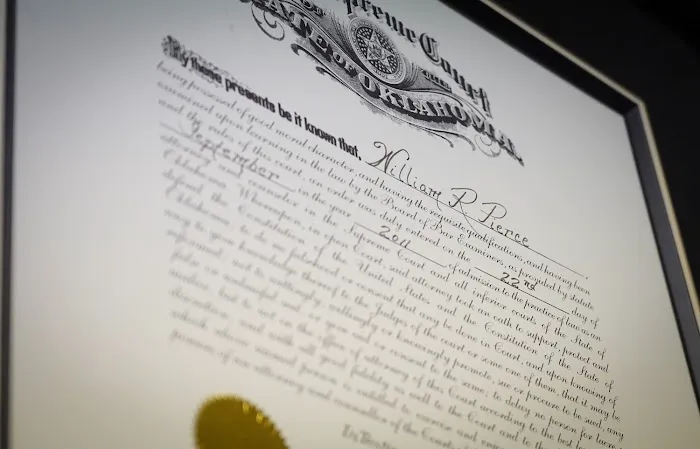 preme Court
OF THE
STATE OF OKLAHOMA
By these presents be it known that, William R Pierce
being possessed of good moral character, and having the requisite qualifications, and having been
examined upon learning in the law by the Board of Bar Examiners, as provided by statute
and the rules of this court, an order was duly entered on the 22nd day of
September in the year 2011 of admission to the practice of law as an
attorney and counselor in the Supreme Court and all inferior courts of the State of
Oklahoma. Whereupon, in open Court, said attorney took an oath to support, protect and
defend the Constitution of the United States and the Constitution of the State of
Oklahoma; to do no falsehood or consent that any be done in Court, and upon knowing of
any to give knowledge thereof to the Judges of the court or some one of them, that it may be
reformed; not to wittingly, willingly or knowingly promote, sue or procure to be sued, any
false or unlawful suit, or give aid or consent to the same; to delay no person for lucre or
malice, but to act in the office of attorney of this Court according to the best
and with all good fidelity as well to the Court and to
above named person is entitled to exercise and
of an attorney and counsellor of the Courts of